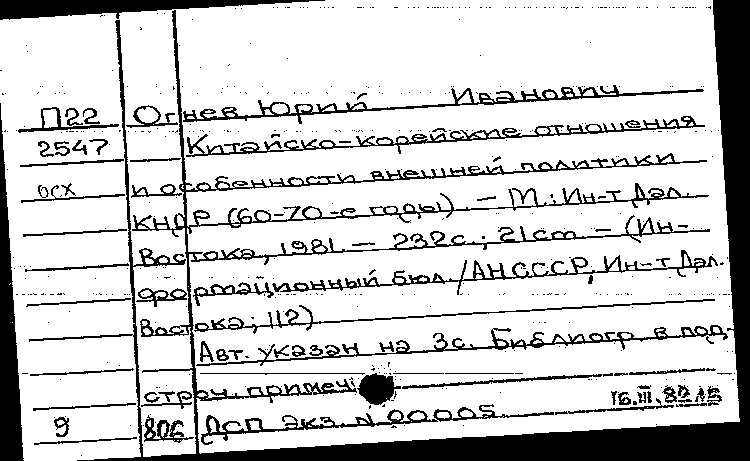 П22 Огнев, Юрий Иванович
2547 Китайско-корейские отношения
осх и особенности внешней политики
КНДР (60-70-е годы). - М.: Ин-т Дал.
Востока, 1981. - 232с.; 21cm - (Ин-
формационный бюл./АН СССР, Ин-т Дал.
Востока; 112)
Авт. указан на 3с. Библиогр. в под-
строч. примеч
9 806 ДСП Экз. N 00005 16.III.82